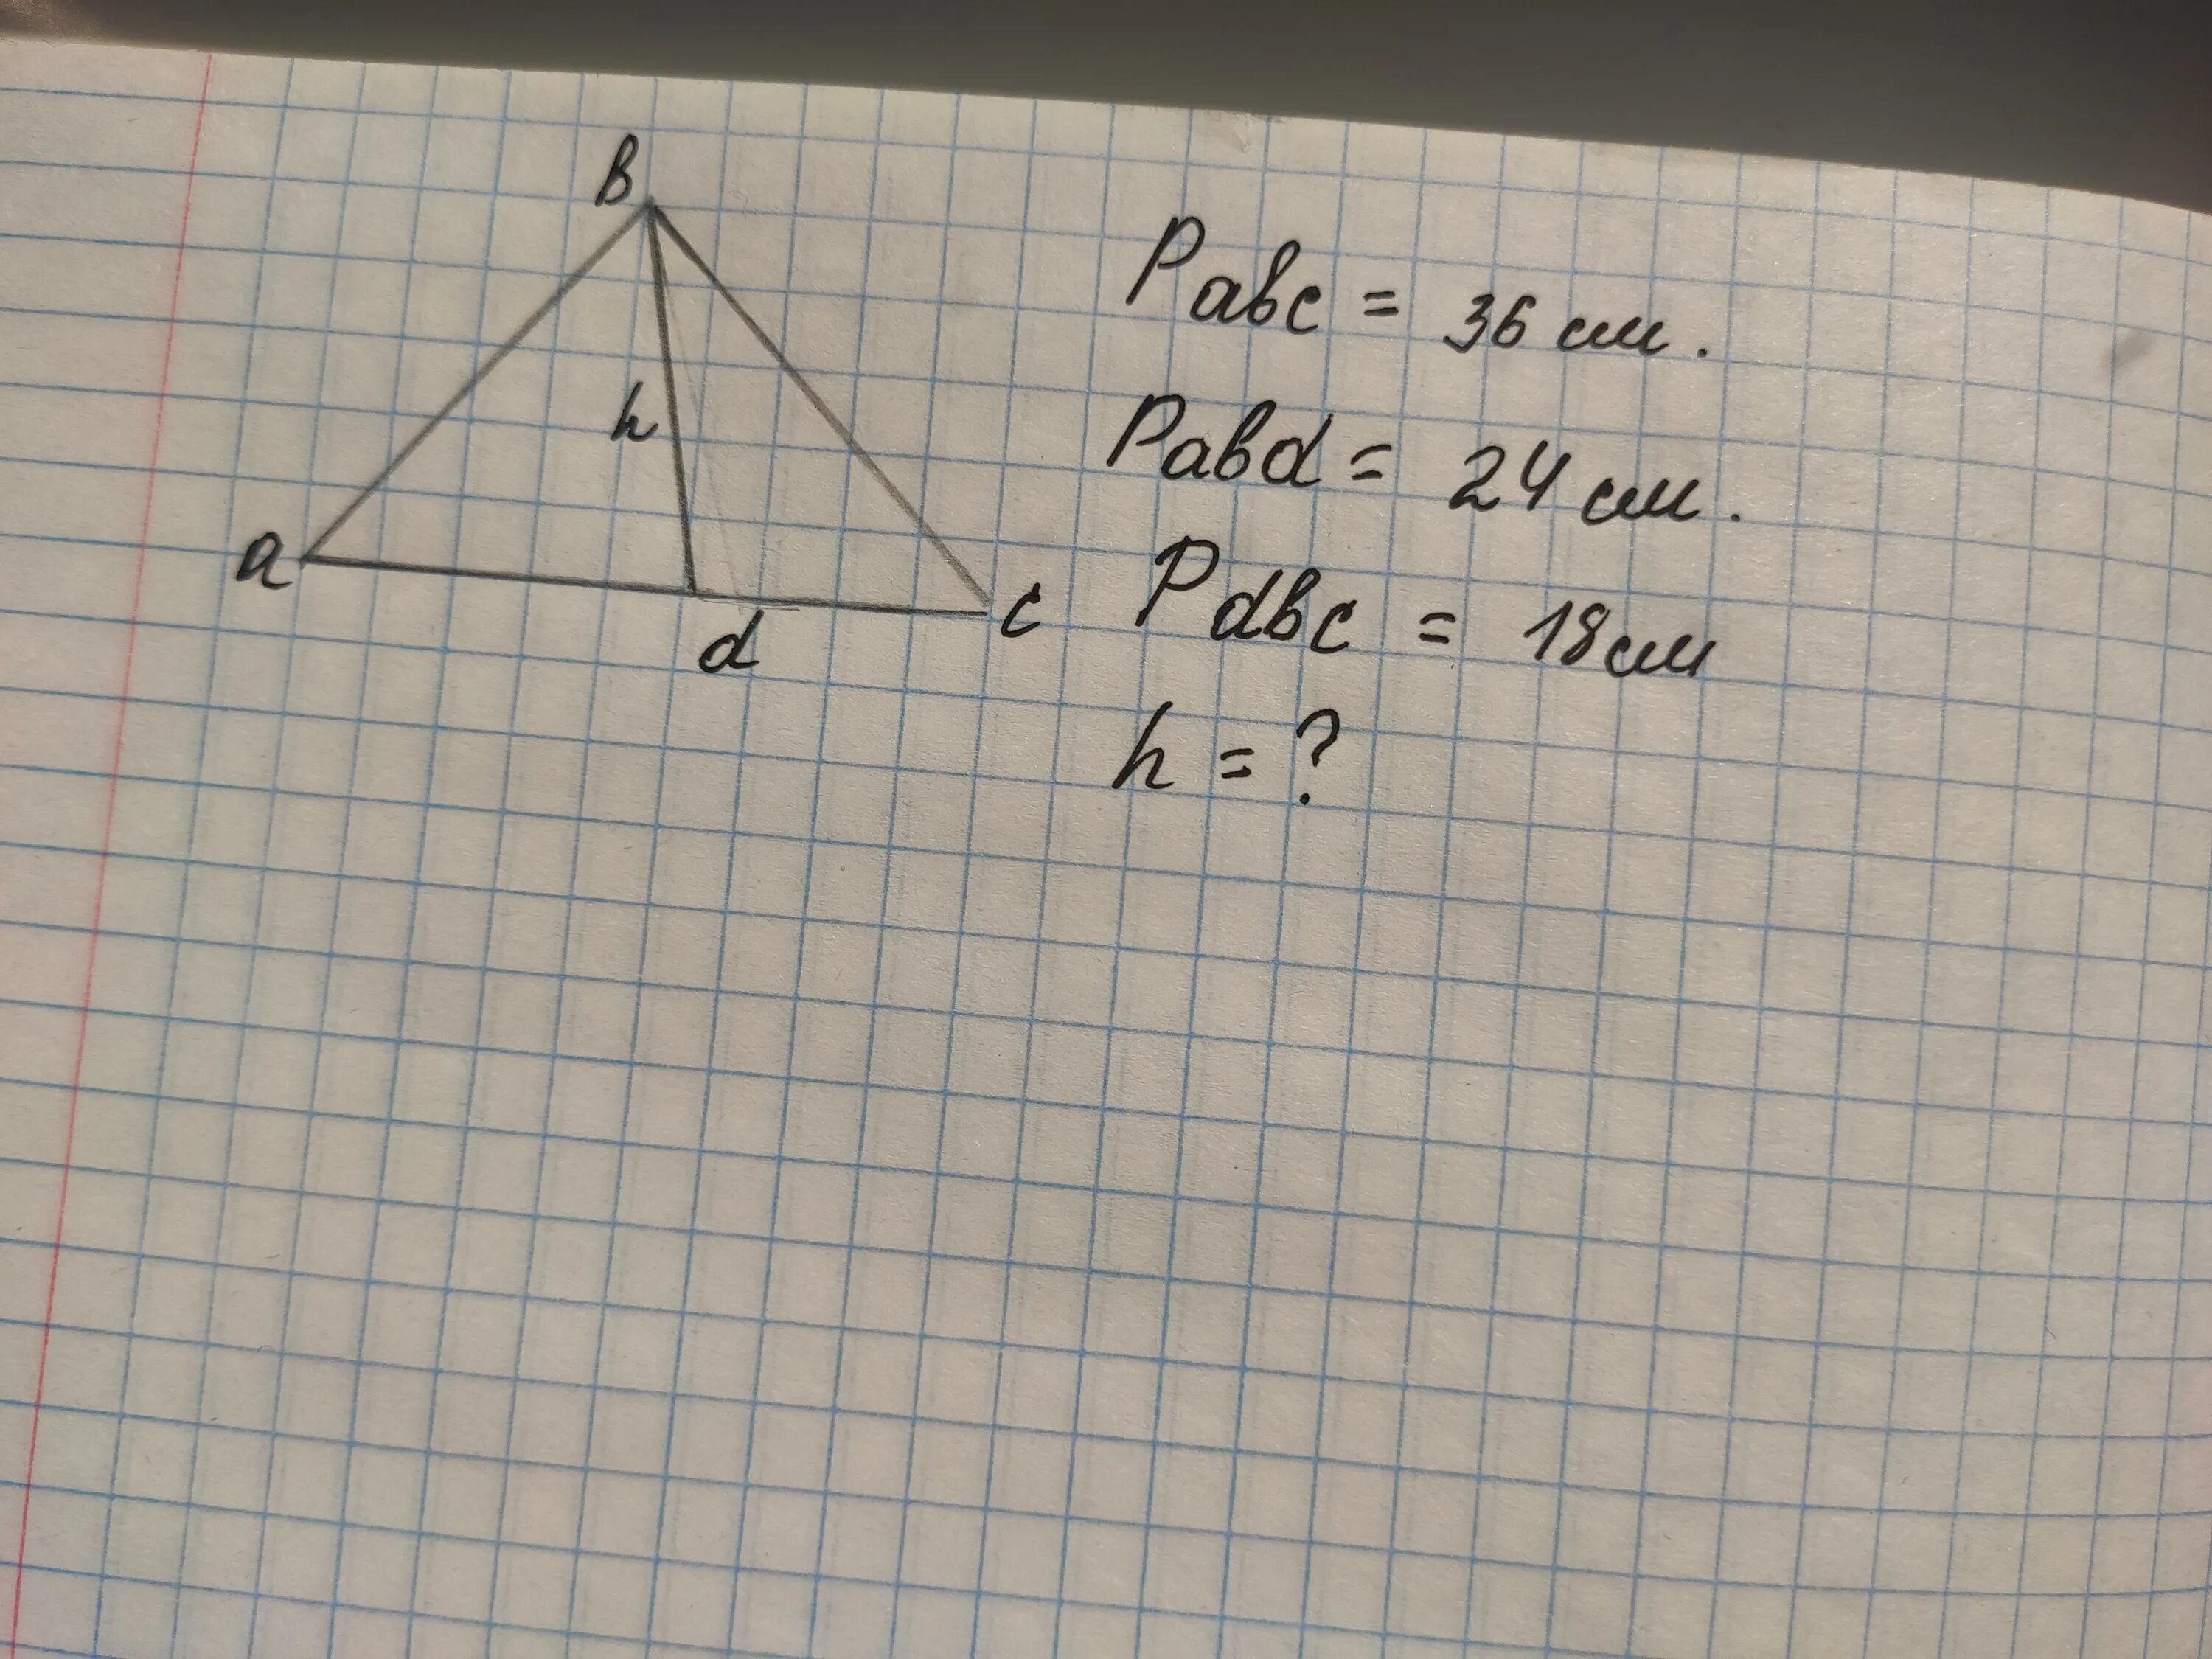 B
h
a
d
c
Pabc = 36 см.
Pabd = 24 см.
Pdbc = 18см
h = ?